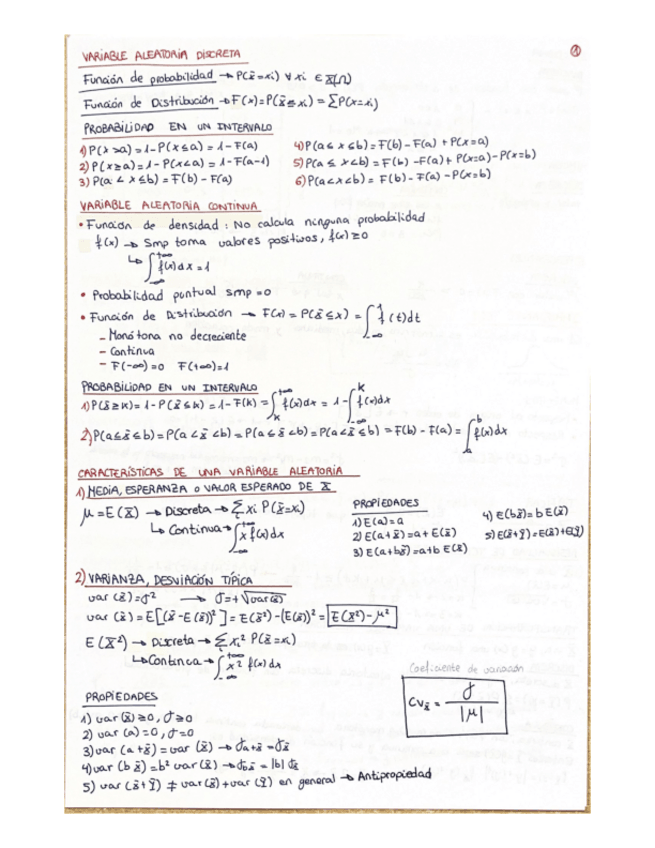 ①
VARIABLE ALEATORIA DISCRETA
Función de probabilidad → P(x̃=xi) ∀ xi ∈ X̃(Ω)
Función de Distribución → F(x)=P(x̃≤xi) = ΣP(x=xi)
PROBABILIDAD EN UN INTERVALO
1) P(x>a)=1-P(x≤a)=1-F(a)
2) P(x≥a)=1-P(x<a)=1-F(a-1)
3) P(a<x≤b)=F(b)-F(a)
4) P(a≤x≤b)=F(b)-F(a)+P(x=a)
5) P(a≤x<b)=F(b)-F(a)+P(x=a)-P(x=b)
6) P(a<x<b)=F(b)-F(a)-P(x=b)
VARIABLE ALEATORIA CONTINUA
• Función de densidad: No calcula ninguna probabilidad
f(x) → Smp toma valores positivos, f(x)≥0
↳ ∫_{-∞}^{+∞} f(x)dx=1
• Probabilidad puntual smp=0
• Función de Distribución → F(x)=P(x̃≤x)=∫_{-∞} f(t)dt
- Monótona no decreciente
- Continua
- F(-∞)=0 F(+∞)=1
PROBABILIDAD EN UN INTERVALO
1) P(x̃≥k)=1-P(x̃≤k)=1-F(k)=∫_{k}^{+∞} f(x)dx = 1-∫_{-∞}^{k} f(x)dx
2) P(a≤x̃≤b)=P(a<x̃<b)=P(a≤x̃<b)=P(a<x̃≤b)=F(b)-F(a)=∫_{a}^{b} f(x)dx
CARACTERÍSTICAS DE UNA VARIABLE ALEATORIA
1) MEDIA, ESPERANZA o VALOR ESPERADO DE X̃
μ=E(X̃) → Discreta → Σ xi P(x̃=xi)
↳ Continua → ∫_{-∞}^{+∞} x f(x)dx
PROPIEDADES
1) E(a)=a
2) E(a+x̃)=a+E(x̃)
3) E(a+bx̃)=a+b E(x̃)
4) E(bx̃)=b E(x̃)
5) E(x̃+ỹ)=E(x̃)+E(ỹ)
2) VARIANZA, DESVIACIÓN TÍPICA
var (x̃)=σ² → σ=+√var(x̃)
var (x̃)=E[(x̃-E(x̃))²]=E(x̃²)-(E(x̃))²=E(x̃²)-μ²
E(X̃²) → Discreta → Σ xi² P(x̃=xi)
↳ Continua → ∫_{-∞}^{+∞} x² f(x)dx
Coeficiente de variación
CVx̃ = σ/|μ|
PROPIEDADES
1) var (x̃)≥0, σ≥0
2) var (a)=0, σ=0
3) var (a+x̃)=var (x̃) → σa+x̃=σx̃
4) var (b x̃)=b² var (x̃) → σbx̃=|b| σx̃
5) var (x̃+ỹ) ≠ var(x̃)+var(ỹ) en general → Antipropiedad